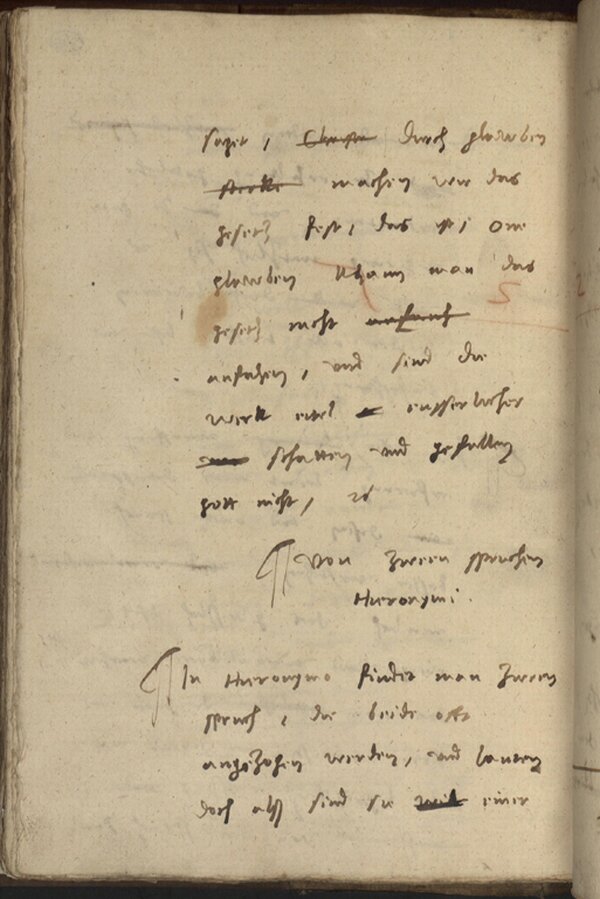 saget, Christus durch glawben
machen wir das
gesetz fest, das ist, one
glawben khann man das
gesetz nicht
anfahen, und sind die
werk eitel eusserlicher
schatten und gefallen
gott nicht,
Von zween spruchen
Hieronymi.
In Hieronymo findet man zween
spruch, die beide offt
angezogen werden, und lauten
doch alß sind sie einer